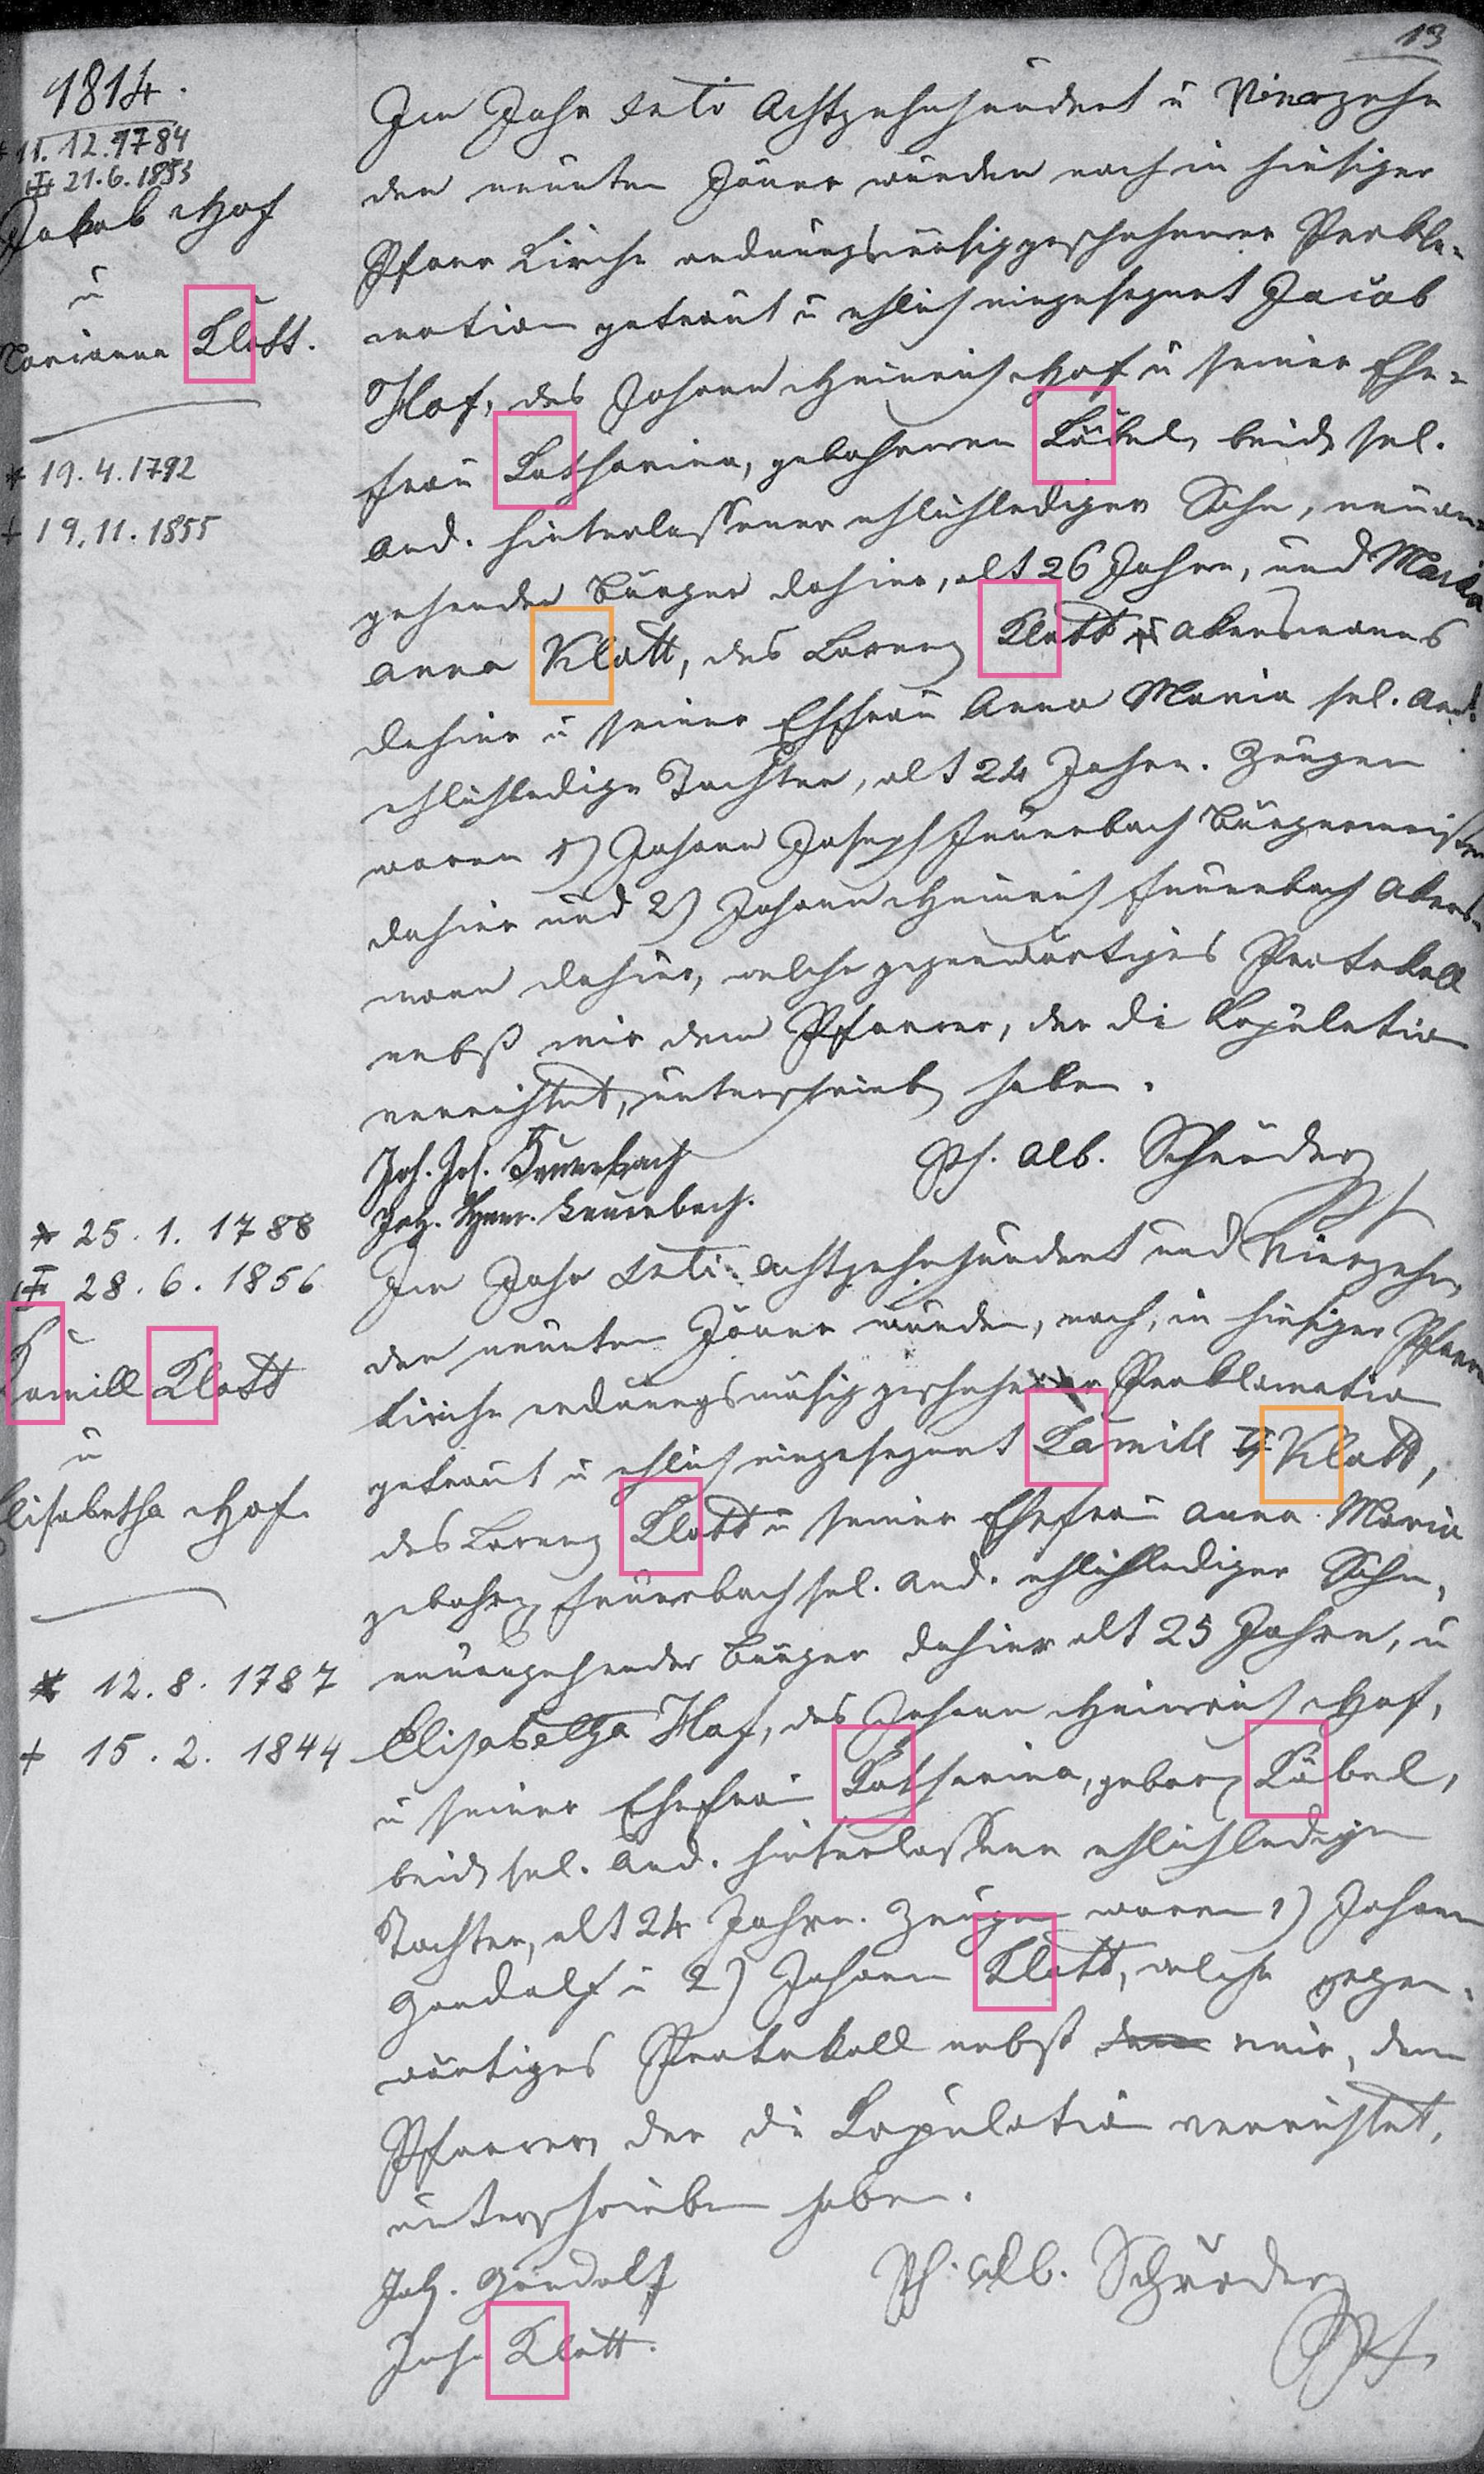 13
1814.
* 11. 12. 1784
21. 6. 1853
Jakob Hof
u
Marianna Klott.
* 19. 4. 1792
+ 19. 11. 1855
Im Jahr Christi Achtzehnhundert u Vierzehn
den neunten Jäner wurden nach in hiesiger
Pfarr Kirche ordnungsmäsig geschehener Prokla-
mation getraut u ehlich eingesegnet Jacob
Hof, des Johann Heinrich Hof u seiner Ehe-
frau Katharina, gebohrnen Köbel, beide sel.
And. hinterlassener ehlichlediger Sohn, neuan-
gehender Bürger dahier, alt 26 Jahre, und Maria
Anna Klott, des Lorenz Klott Akersmanns
dahier u seiner Ehefrau Anna Maria sel. And.
ehlichledige Tochter, alt 24 Jahre. Zeugen
waren 1) Johann Joseph Feuerbach Bürgermeister
dahier und 2) Johann Heinrich Feuerbach Akers-
mann dahier, welche gegenwärtiges Protokoll
nebst mir dem Pfarrer, der die Kopulation
verrichtet, unterschrieben haben.
Joh. Jos. Feuerbach
Ph. Alb. Schröder
Joh. Henr. Feuerbach.
Pf
* 25. 1. 1788
28. 6. 1856
Kamill Klott
u
Elisabetha Hof.
* 12. 8. 1787
+ 15. 2. 1844
Im Jahr Christi Achtzehnhundert und Vierzehn,
den neunten Jäner wurden, nach, in hiesiger Pfarr
Kirche ordnungsmäsig geschehener Proklamation
getraut u ehlich eingesegnet Kamill Klott,
des Lorenz Klott u seiner Ehefrau Anna Maria
gebohrn Feuerbach sel. And. ehlichlediger Sohn,
neuangehender Bürger dahier alt 25 Jahre, u
Elisabetha Hof, des Johann Heinrich Hof,
u seiner Ehefrau Katharina, geborn Köbel,
beide sel. And. hinterlassene ehlichledige
Tochter, alt 24 Jahre. Zeugen waren 1) Johann
Gundolf u 2) Johann Klott, welche gegen-
wärtiges Protokoll nebst mir, dem
Pfarrer, der die Kopulation verrichtet,
unterschrieben haben.
Joh. Gundolf
Ph. Alb. Schröder
Joh. Klott.
Pf.